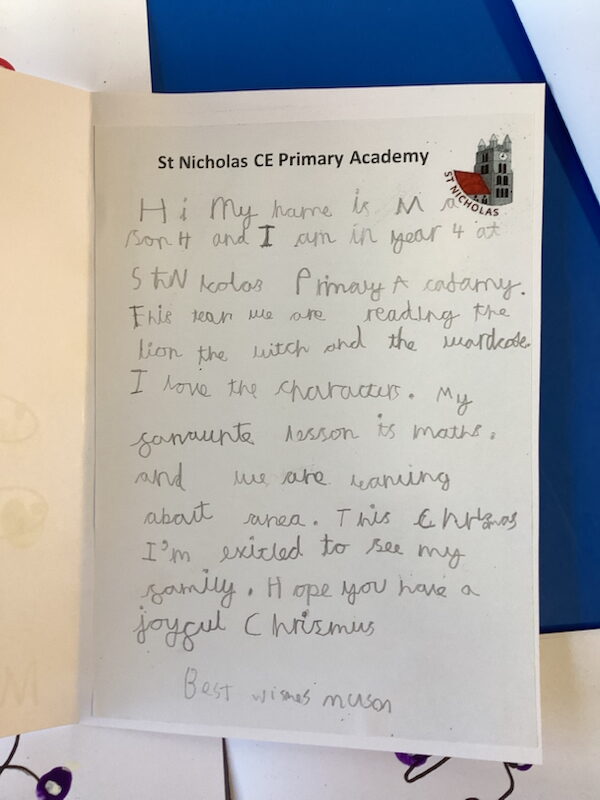 St Nicholas CE Primary Academy
ST NICHOLAS
Hi My name is M a
son H and I am in year 4 at
St Nickolas Primary A catamy.
This tear we are reading the
lion the witch and the wardrobe.
I love the characters. My
favaunte lesson is maths.
and we are leaning
about area. This Chrismas
I'm exitled to see my
family. Hope you have a
joyful Chrismus
Best wishes mason